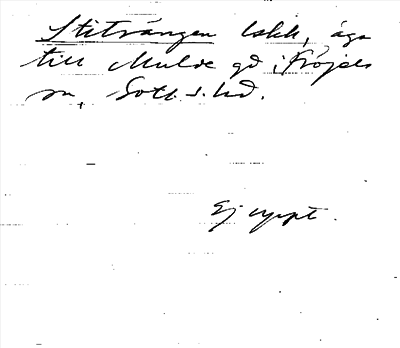 Stitrången lskh, äga
till Mulde gd i Fröjels
sn, Gotl. s. hd.
Ej uppt.